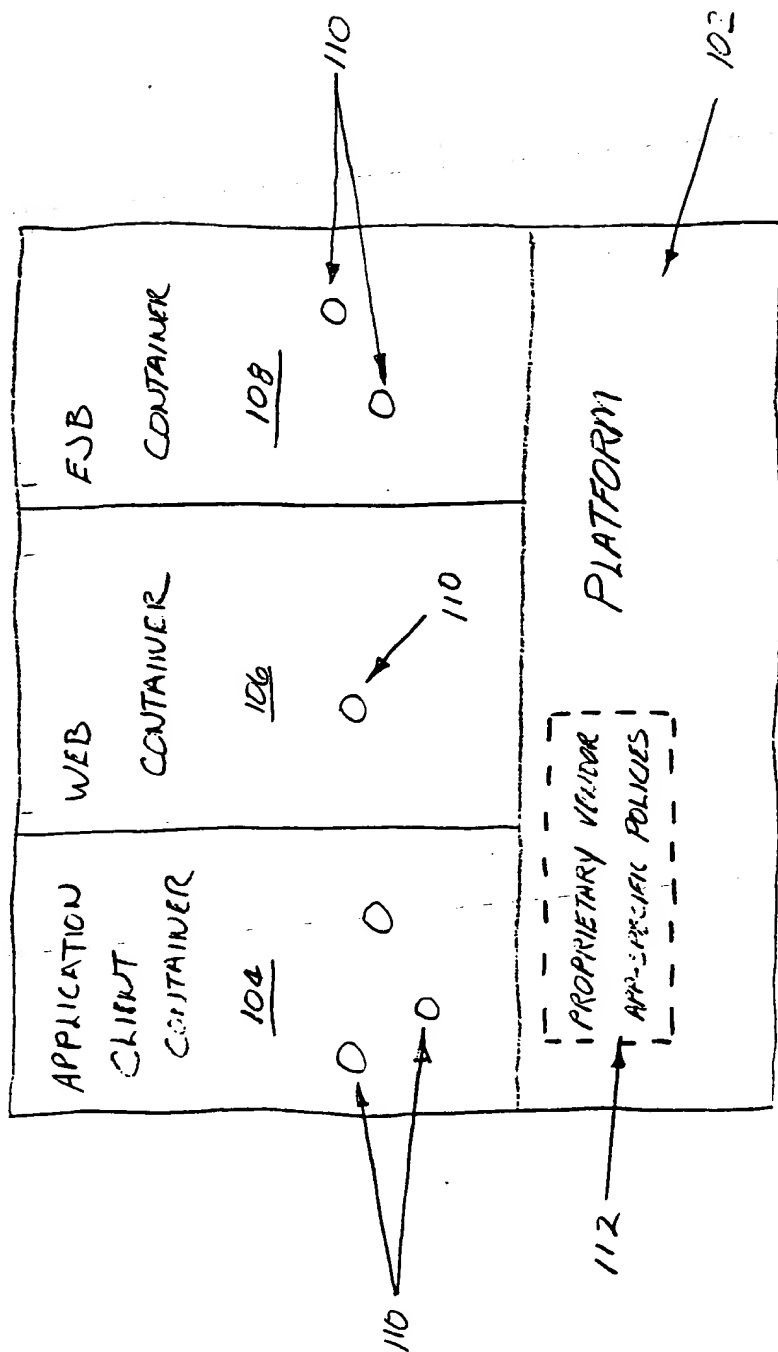 APPLICATION
CLIENT
CONTAINER
104
WEB
CONTAINER
106
EJB
CONTAINER
108
110
110
110
PROPRIETARY VENDOR
APP-SPECIFIC POLICIES
112
PLATFORM
102